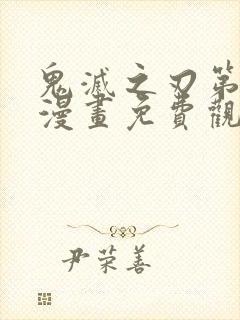 鬼滅之刃第
漫畫免費觀
尹荣善